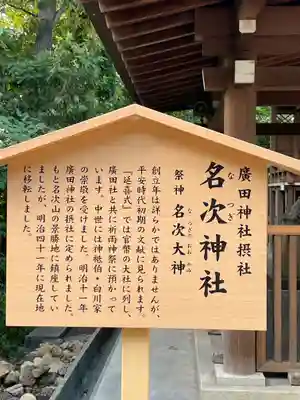 廣田神社摂社
名次神社
なつぎ
祭神 名次大神
なつぎのおおかみ
創立年は詳らかではありませんが、
平安時代初期の文献に見られます。
「延喜式」では官幣の大社に列し、
廣田社と共に祈雨祭に預かって
います。中世には神祇伯・白川家
の崇敬を受けました。明治十一年
廣田神社の摂社に定められました。
もと名次山の景勝地に鎮座してい
ましたが、明治四十一年に現在地
に移転しました。